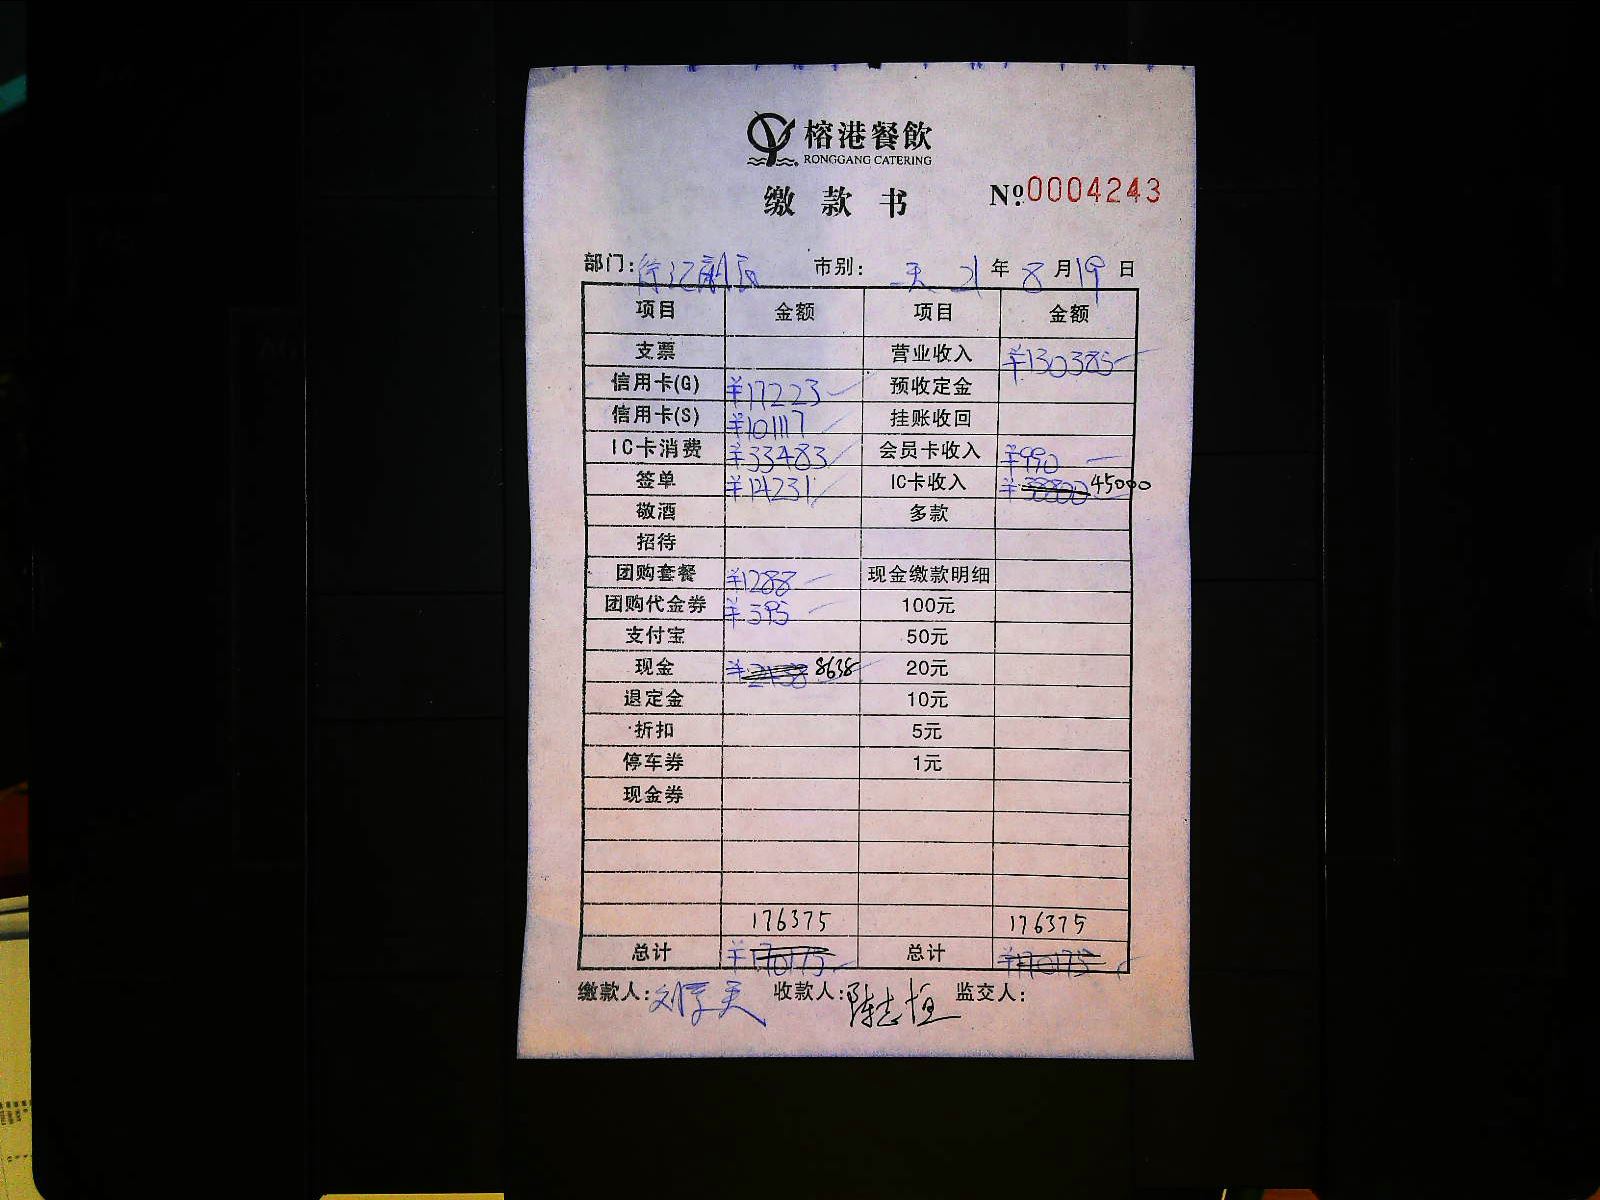 榕港餐飲
RONGGANG CATERING
缴款书 Nº.0004243
部门： 市别： 天 21 年 8 月 19 日
项目 金额 项目 金额
支票 营业收入 ¥130385
信用卡(G) ¥17223 预收定金
信用卡(S) ¥101117 挂账收回
IC卡消费 ¥33483 会员卡收入 ¥990
签单 ¥14231 IC卡收入 ¥38800 45000
敬酒 多款
招待
团购套餐 ¥1288 现金缴款明细
团购代金券 ¥395 100元
支付宝 50元
现金 ¥2438 8638 20元
退定金 10元
折扣 5元
停车券 1元
现金券
176375 176375
总计 ¥170175 总计 ¥170175
缴款人： 收款人：陈志恒 监交人：